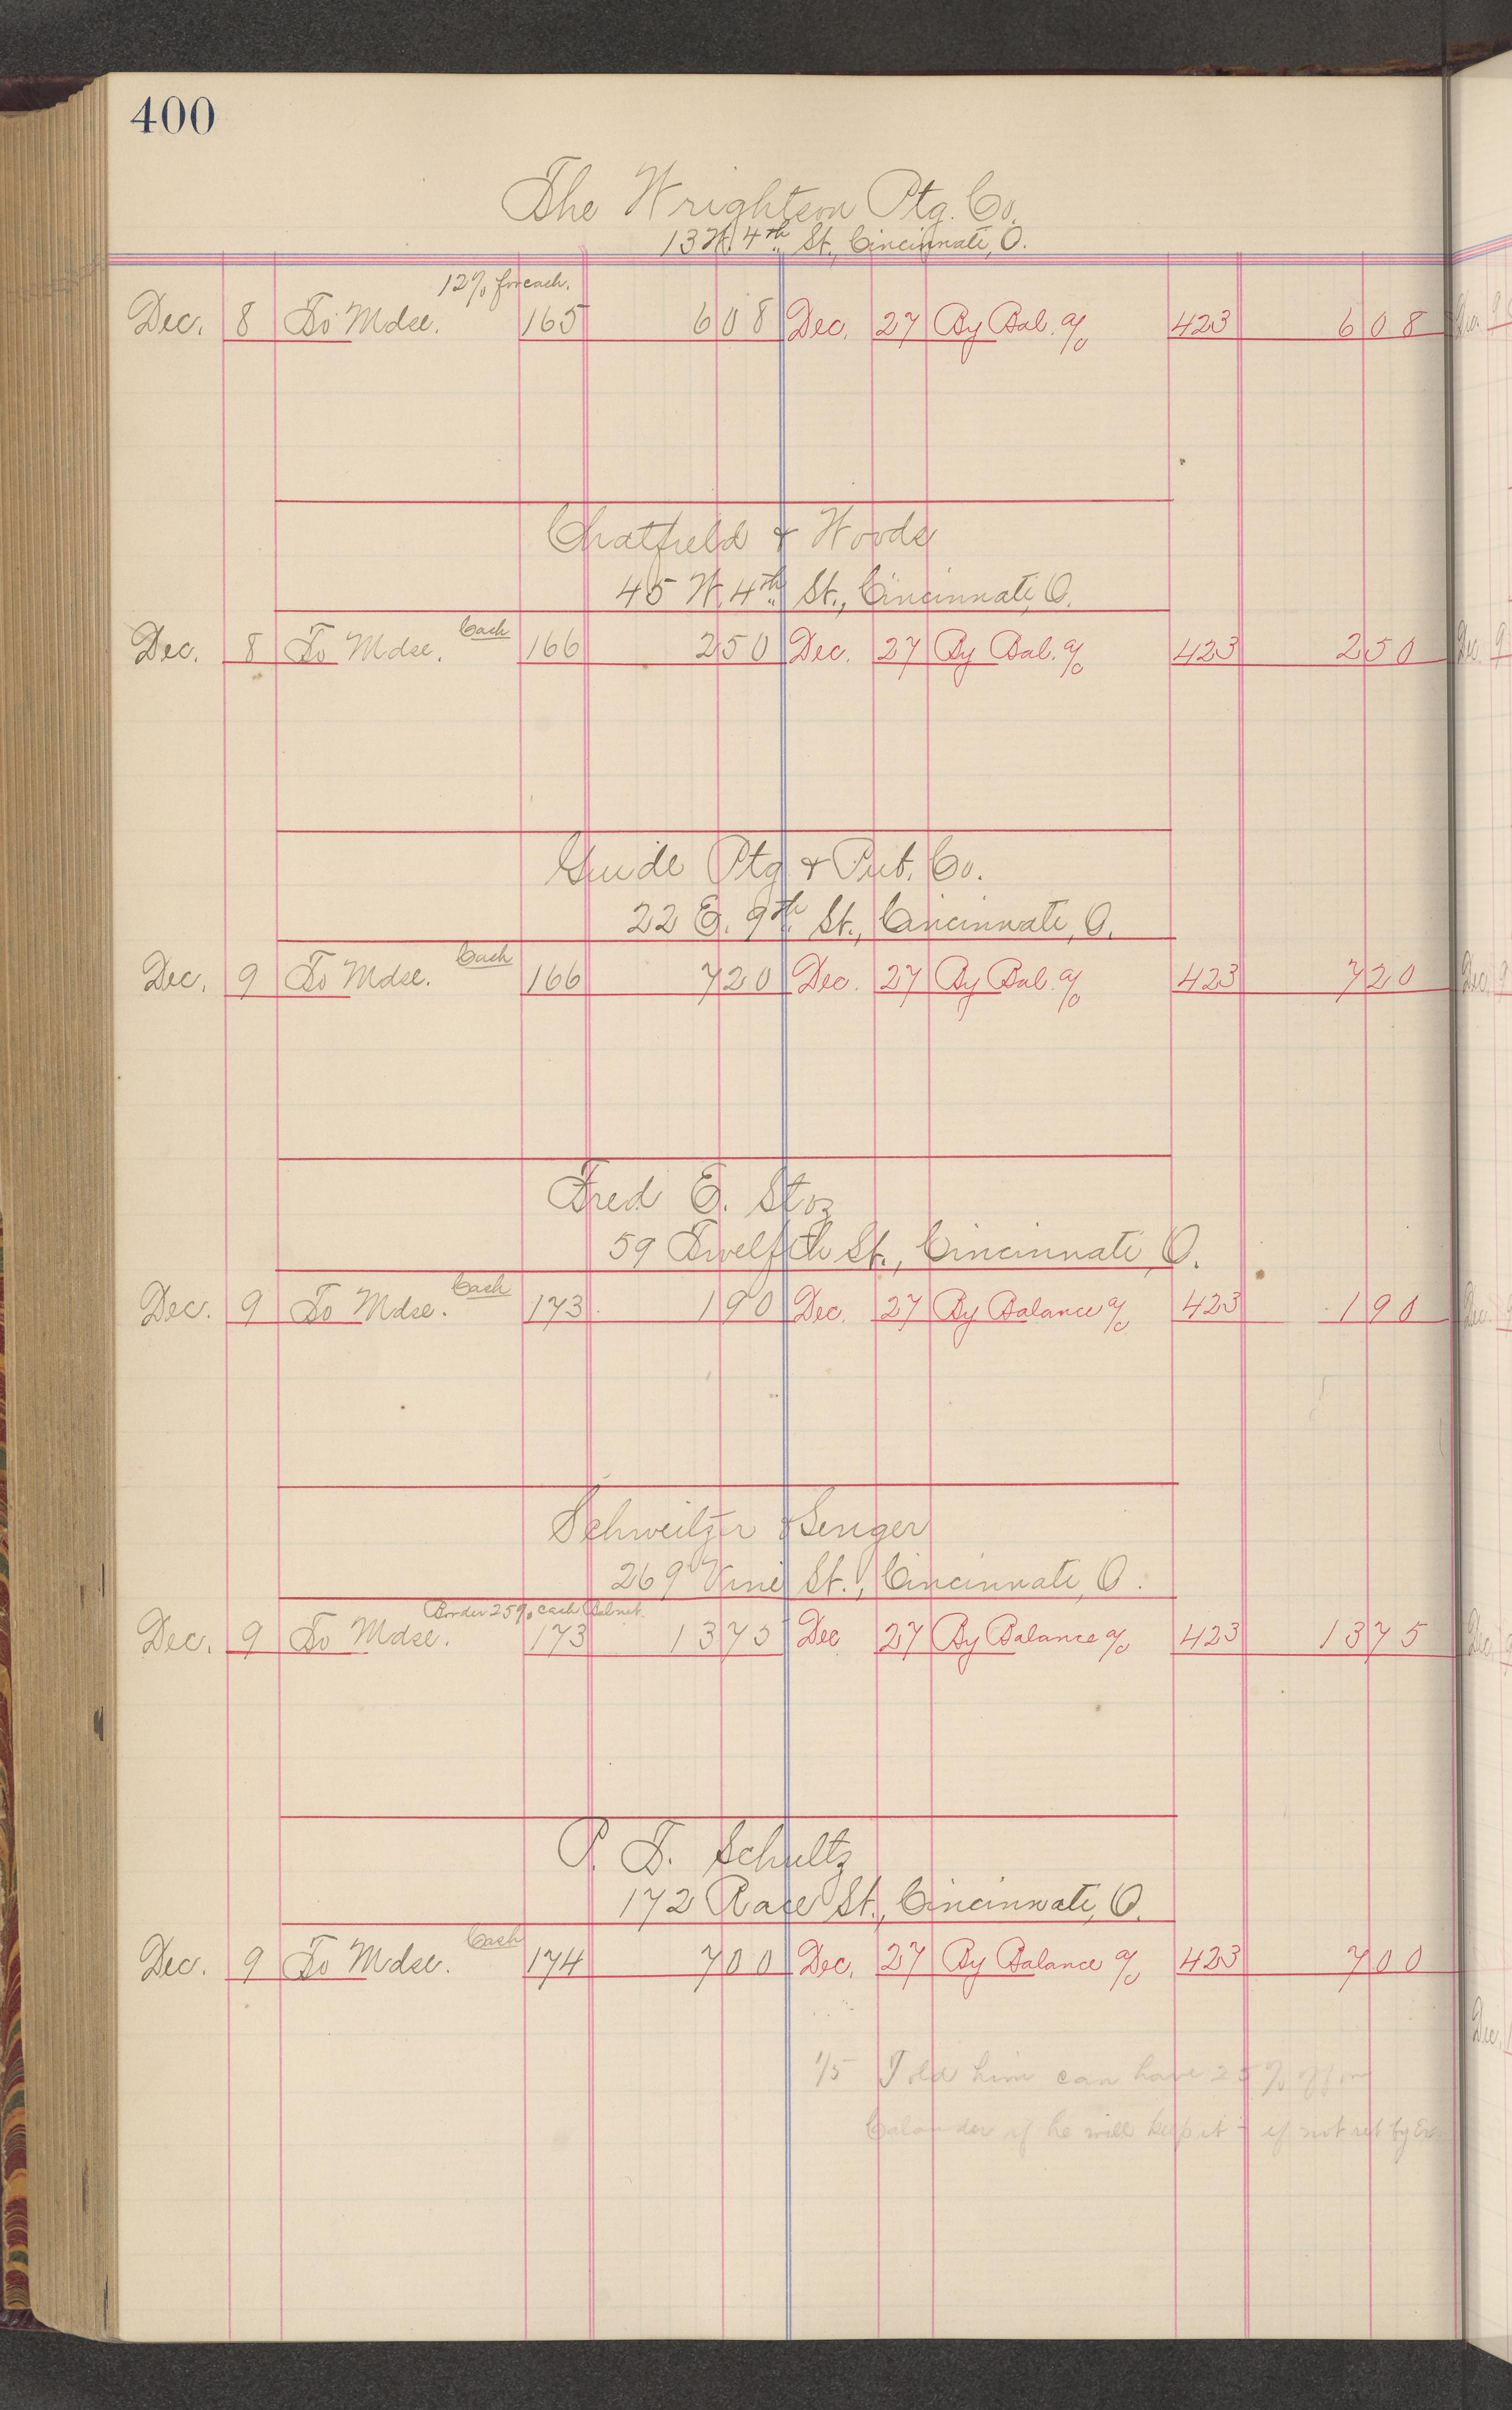 400
The Wrightson Ptg. Co.
13 W. 4th St., Cincinnati, O.
12% for cash.
Dec. 8 To Mdse. 165 6 08 Dec. 27 By Bal. a/c 423 6 08
Chatfield & Woods
45 W. 4th St., Cincinnati, O.
Cash
Dec. 8 To Mdse. 166 2 50 Dec. 27 By Bal. a/c 423 2 50
Guide Ptg & Pub. Co.
22 E. 9th St., Cincinnati, O.
Cash
Dec. 9 To Mdse. 166 7 20 Dec. 27 By Bal. a/c 423 7 20
Fred E. Stoz
59 Twelfth St., Cincinnati, O.
Cash
Dec. 9 To Mdse. 173 1 90 Dec. 27 By Balance a/c 423 1 90
Schweitzer & Senger
269 Vine St., Cincinnati, O.
Border 25% cash Bal net.
Dec. 9 To Mdse. 173 13 75 Dec 27 By Balance a/c 423 13 75
P. T. Schultz
172 Race St., Cincinnati, O.
Cash
Dec. 9 To Mdse. 174 7 00 Dec. 27 By Balance a/c 423 7 00
1/5 Told him can have 25% off on
Calander if he will keep it - if not ret by Ex